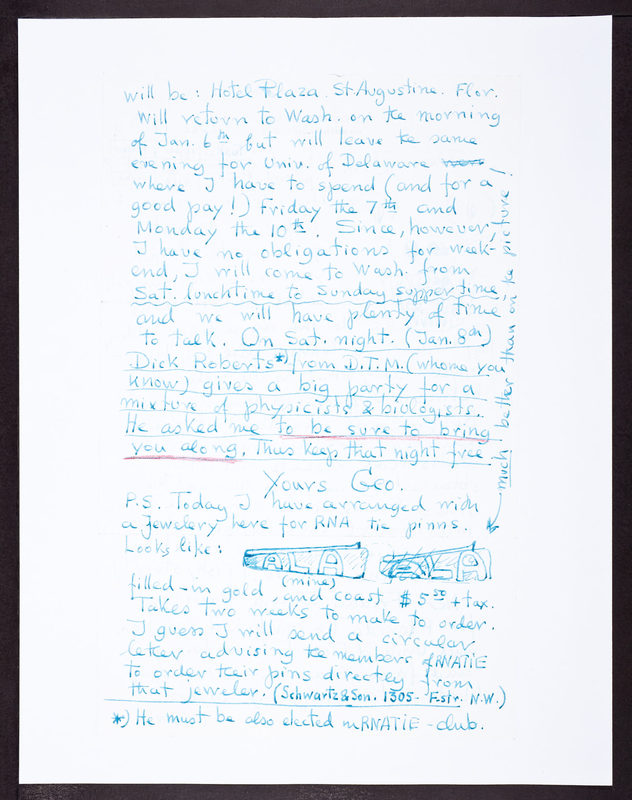 will be: Hotel Plaza. St Augustine. Flor.
Will return to Wash. on the morning
of Jan. 6th but will leave the same
evening for Univ. of Delaware
where I have to spend (and for a
good pay!) Friday the 7th and
Monday the 10th. Since, however,
I have no obligations for week-
end, I will come to Wash. from
Sat. lunchtime to Sunday suppertime,
and we will have plenty of time
to talk. On Sat. night. (Jan. 8th)
Dick Roberts*) from D.T.M. (whome you
know) gives a big party for a
mixture of physicists & biologists.
He asked me to be sure to bring
you along. Thus keep that night free.
Yours Geo.
P.S. Today I have arranged with
a jewelery here for RNA tie pinns.
much better than on the picture!
Looks like: ALA ALA
(mine)
filled-in gold, and coast $5 50 + tax.
Takes two weeks to make to order.
I guess I will send a circular
letter advising the members of RNATIE
to order their pins directey from
that jeweler. (Schwartz & Son. 1305. F str. N.W.)
*) He must be also elected mRNATIE-club.